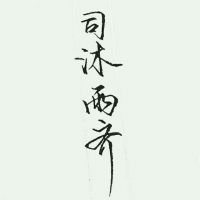 司沐雨齐